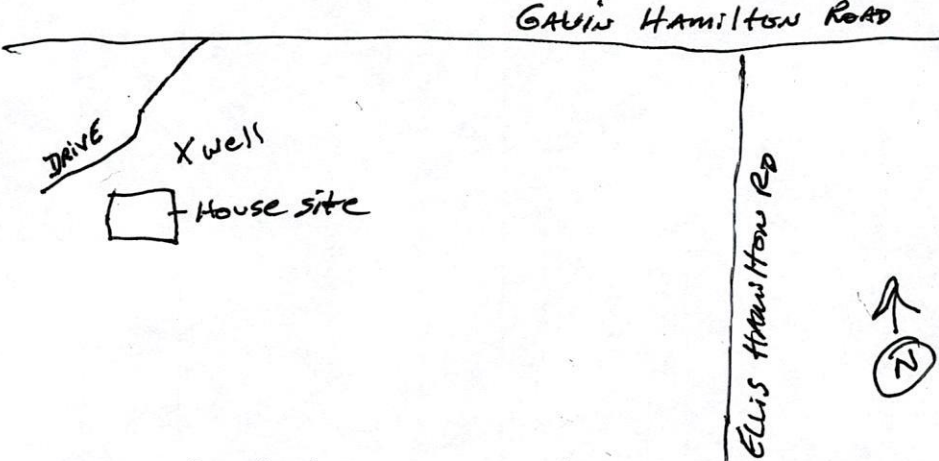 GAVIN HAMILTON ROAD
DRIVE
X well
House site
ELLIS HAMILTON RD
N